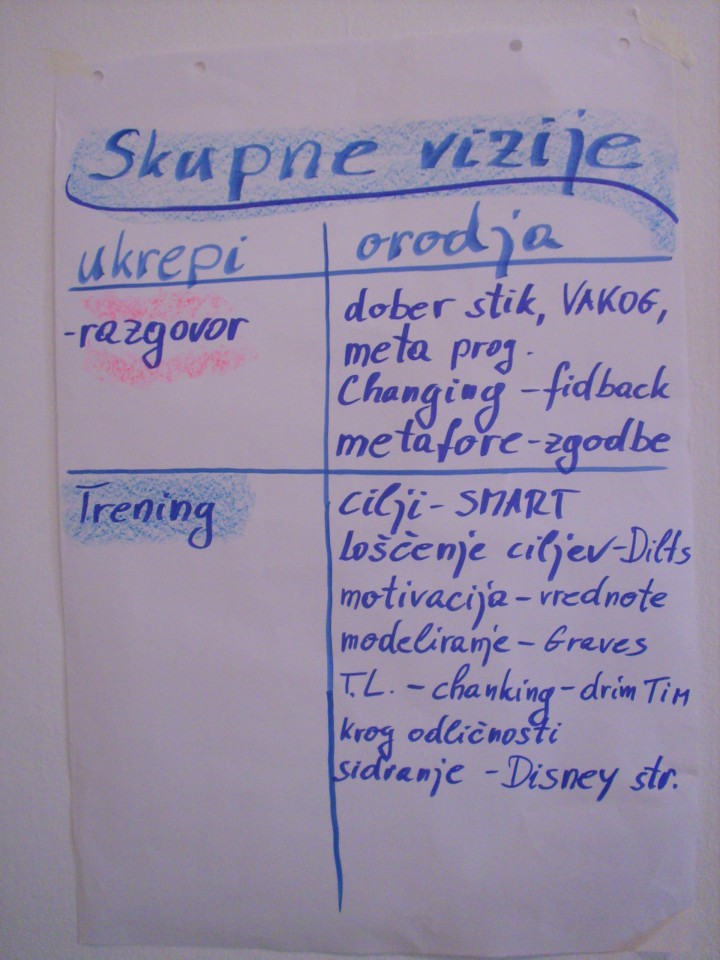 Skupne vizije
ukrepi
orodja
-razgovor
dober stik, VAKOG,
meta prog.
Changing - fidback
metafore-zgodbe
Trening
cilji - SMART
Loščenje ciljev-Dilts
motivacija - vrednote
modeliranje - Graves
T.L. - chanking - drim Tim
krog odličnosti
sidranje - Disney str.